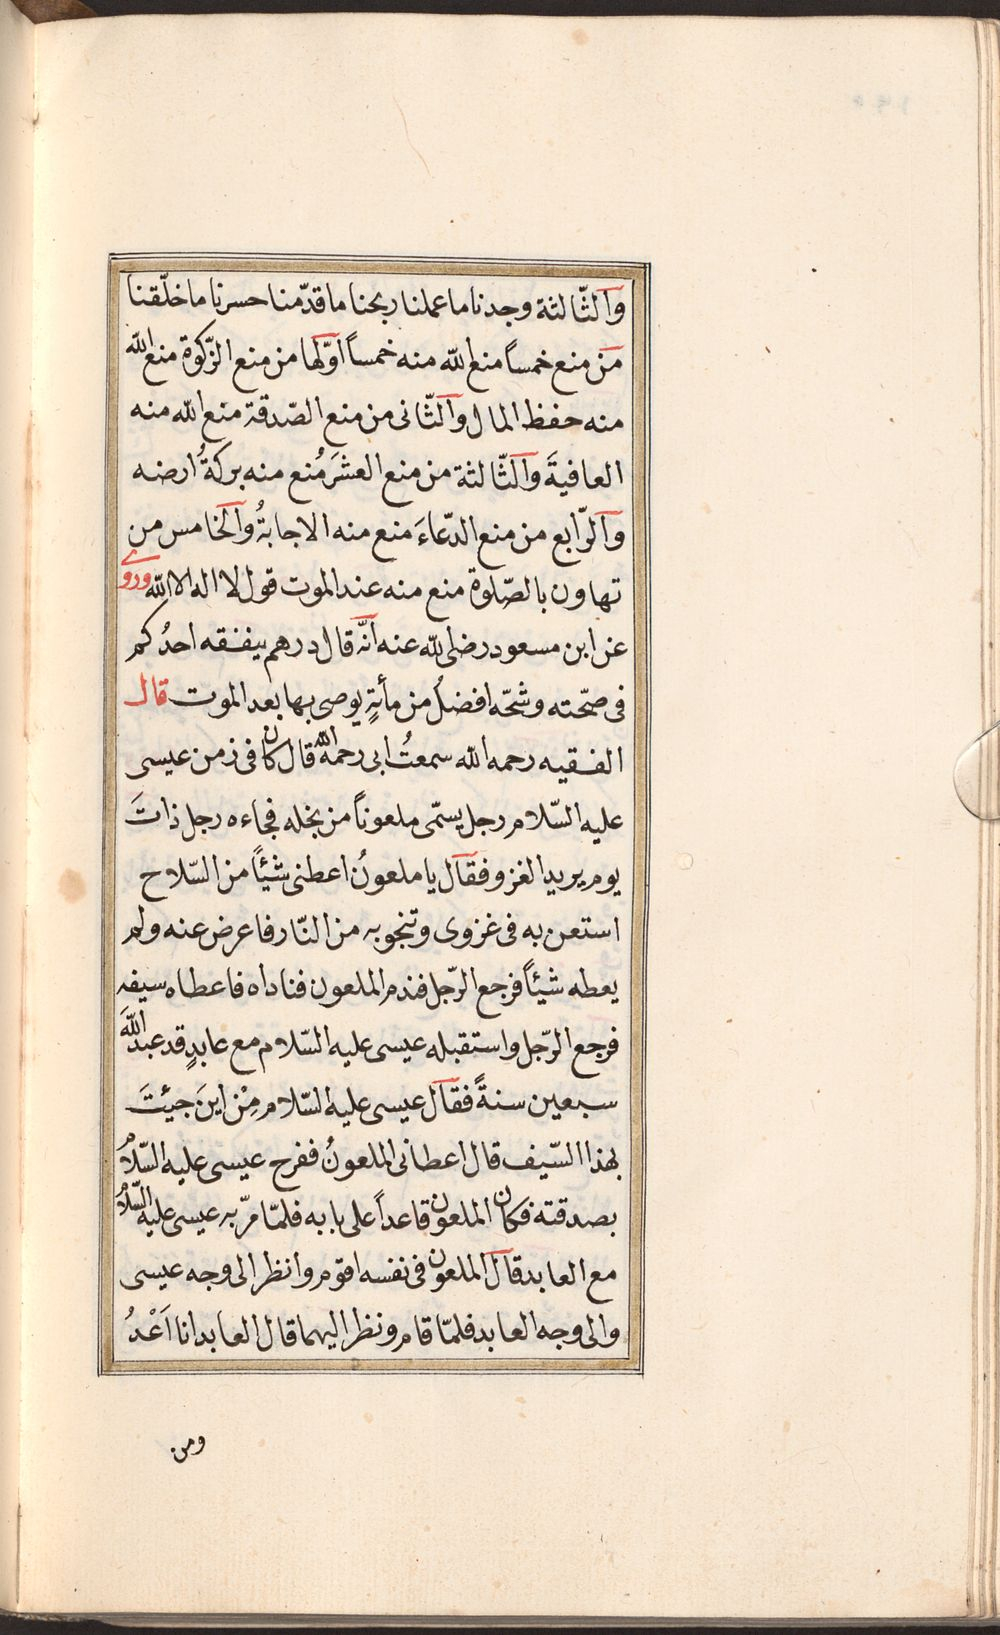 والثّالثة وجدنا ما عملنا ربحنا ما قدّمنا حسرنا ما خلّقنا
من منع خمساً منع الله منه خمساً اوّلها من منع الزّكوة منع الله
منه حفظ المال والثّانى من منع الصّدقة منع الله منه
العافيةَ والثّالثة من منع العشرَ مُنع منه بركةُ ارضه
والرّابع من منع الدّعاءَ منع منه الاجابةُ والخامس من
تهاون بالصّلوة منع منه عند الموت قول لا اله الا الله وروى
عن ابن مسعود رضى الله عنه انّه قال درهم ينفقه احدُكم
فى صحّته وشحّه افضلُ من مأيةٍ يوصى بها بعد الموت قال
الفقيه رحمه الله سمعتُ ابى رحمه الله قال كان فى زمن عيسى
عليه السّلام رجل يسمّى ملعوناً من بخله فجاءه رجل ذاتَ
يوم يريد الغزو فقال يا ملعونُ اعطنى شيئًا من السّلاح
استعن به فى غزوى وتنجو به من النّار فاعرض عنه ولم
يعطه شيئاً فرجع الرّجل فندم الملعون فناداه فاعطاه سيفه
فرجع الرّجل واستقبله عيسى عليه السّلام مع عابدٍ قد عبد اللهَ
سبعين سنةً فقال عيسى عليه السّلام مِنْ اينَ جيئتَ
بهذا السّيف قال اعطانى الملعونُ ففرح عيسى عليه السّلامُ
بصدقته فكان الملعون قاعداً على بابه فلمّا مرّ به عيسى عليه السّلامُ
مع العابد قال الملعون فى نفسه اقوم وانظر الى وجه عيسى
والى وجه العابد فلمّا قام ونظر اليهما قال العابد انا اَعْدُ
ومن